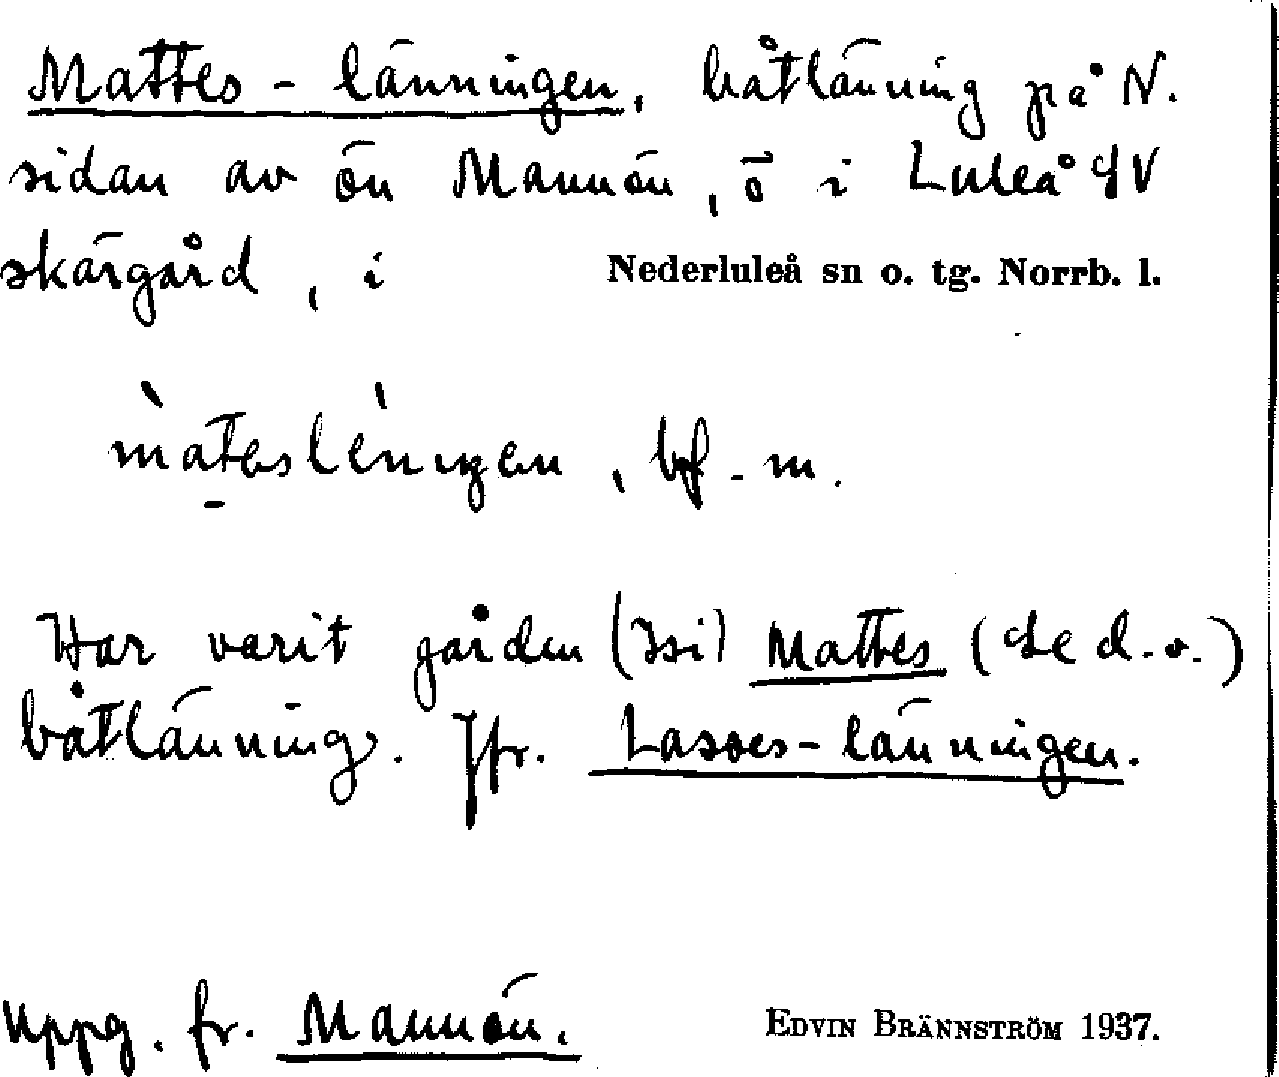 Mattes-länningen, båtlänning på N.
sidan av ön Mannön, ö i Luleå SV
skärgård, i Nederluleå sn o. tg. Norrb. l.
bf. m.
Har varit gården (Isi) Mattes (se d.o.)
båtlänning. Jfr. Lasses-länningen.
Uppg. fr. Mannön. EDVIN BRÄNNSTRÖM 1937.